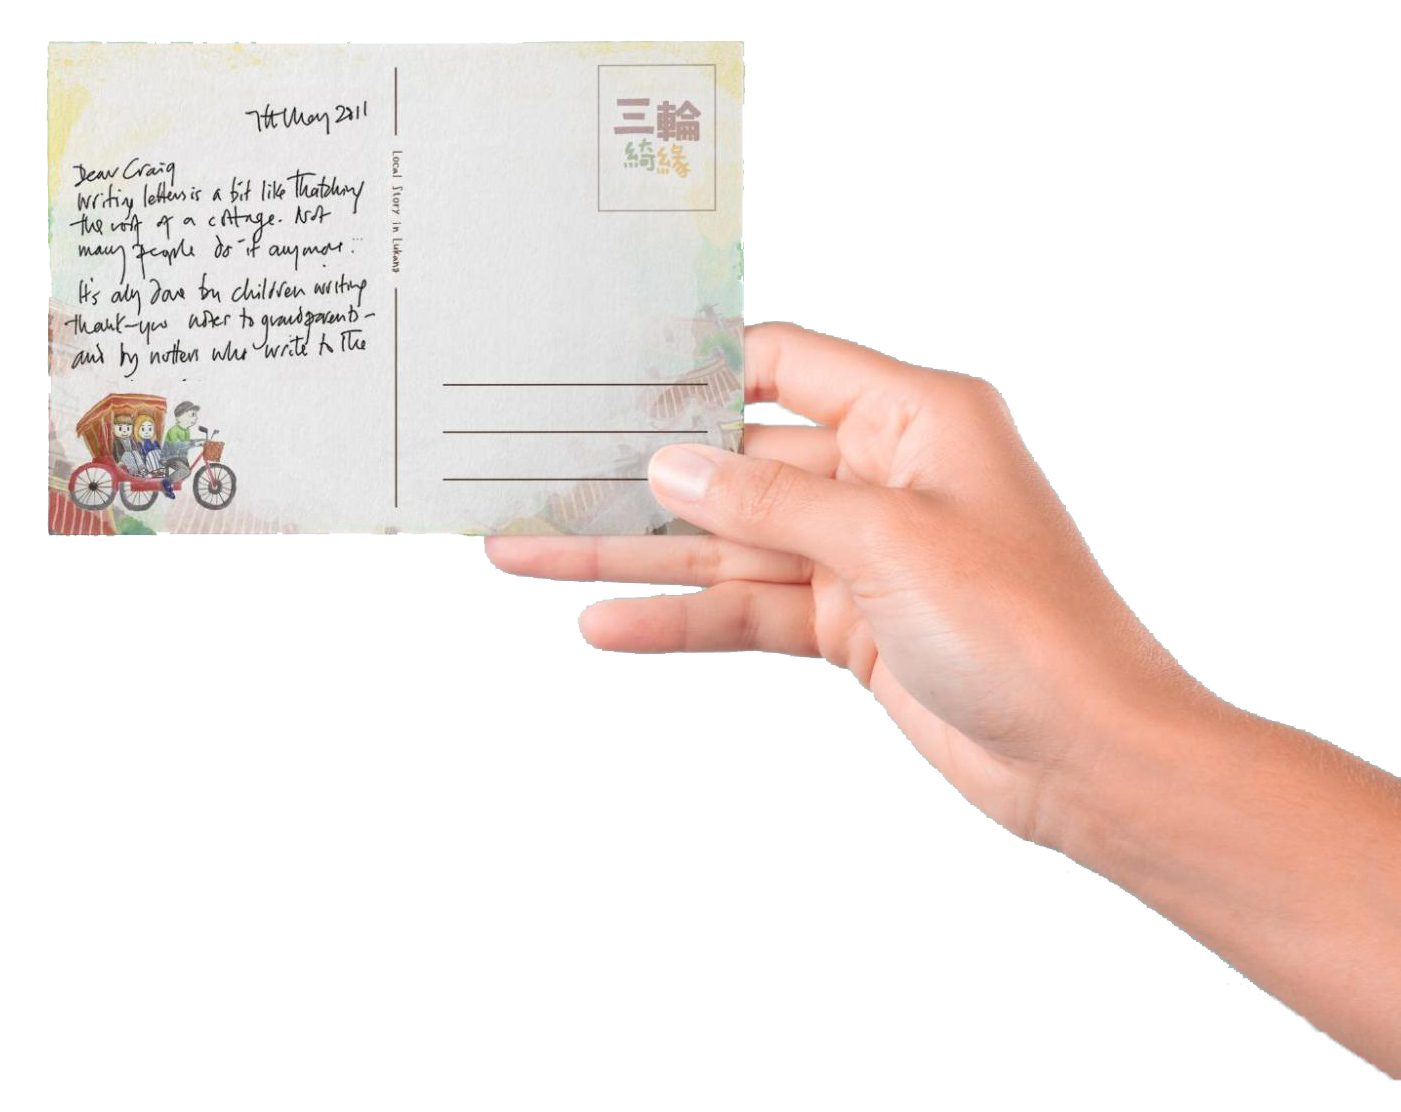 7th May 2011
Dear Craig
Writing letters is a bit like thatching
the roof of a cottage. Not
many people do it anymore.
It's only done by children writing
thank-you notes to grandparents -
and by nutters who write to the
Local Story in Lukang
三輪
綺緣